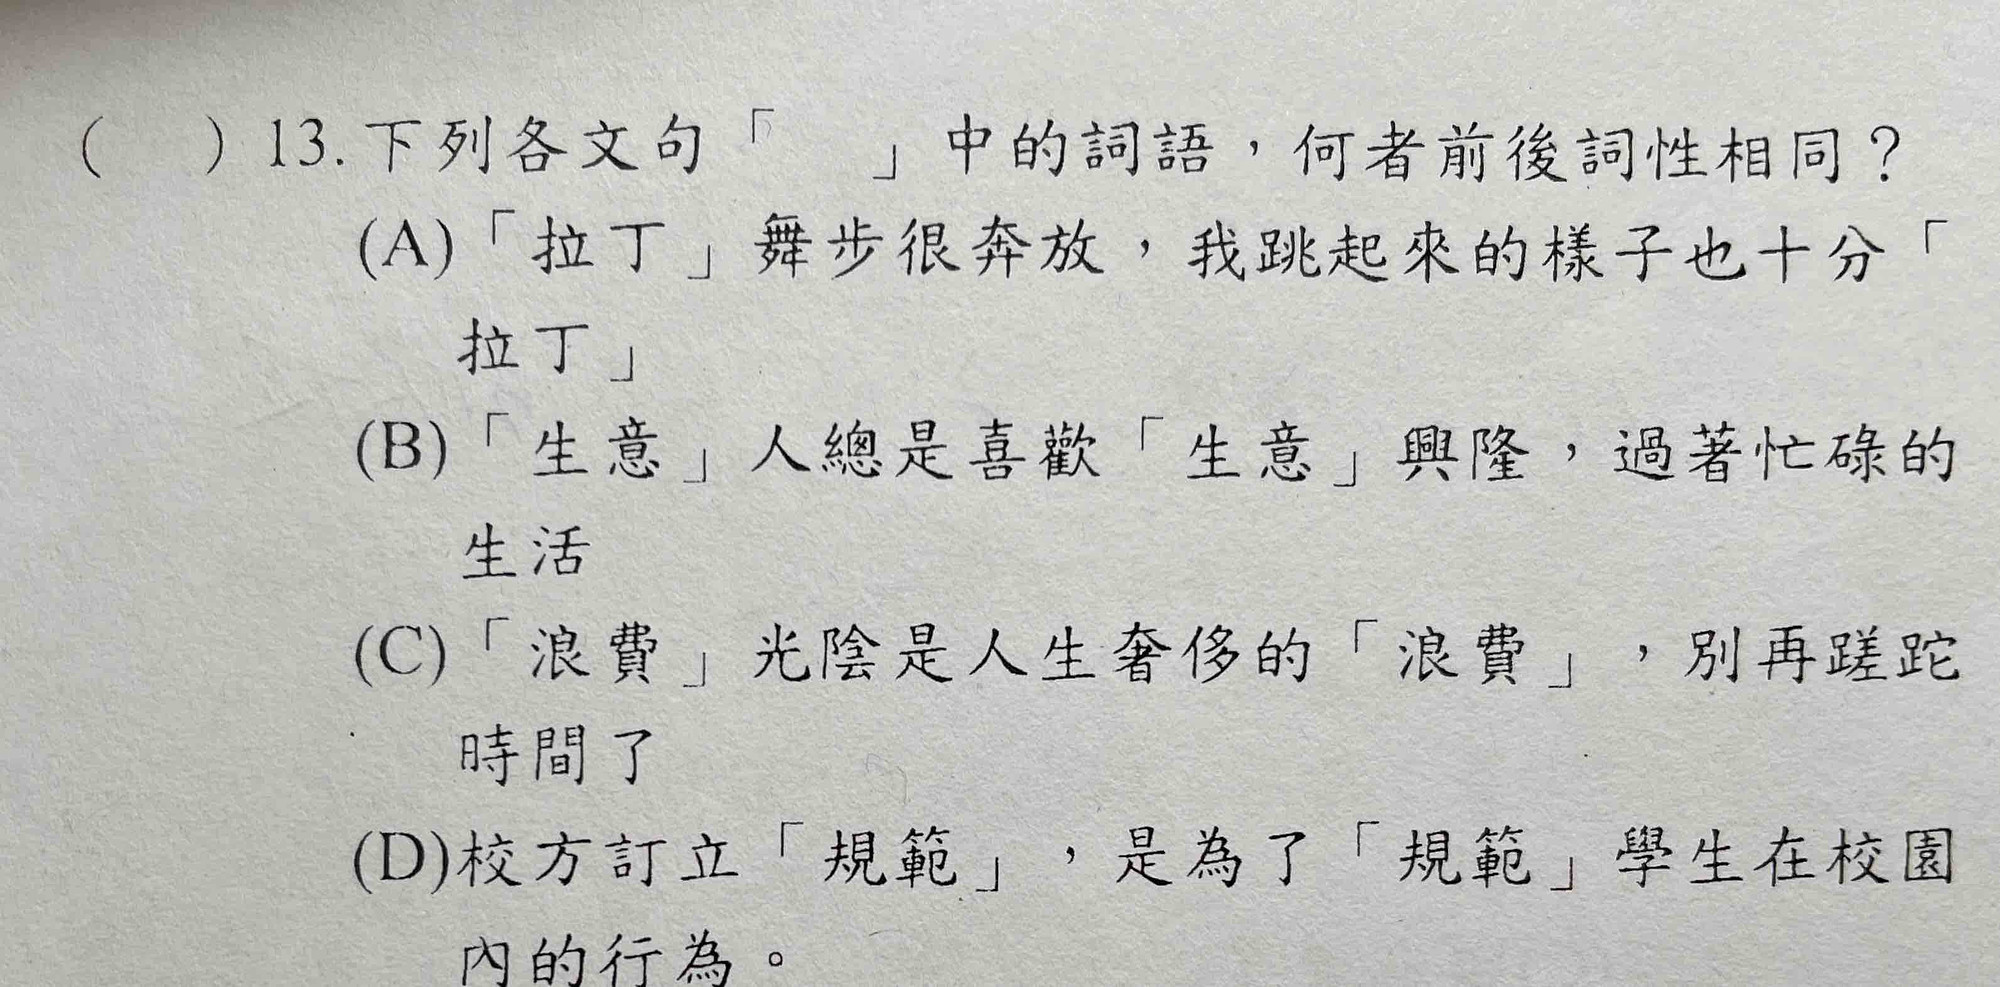 (　)13.下列各文句「　」中的詞語，何者前後詞性相同？
(A)「拉丁」舞步很奔放，我跳起來的樣子也十分「
拉丁」
(B)「生意」人總是喜歡「生意」興隆，過著忙碌的
生活
(C)「浪費」光陰是人生奢侈的「浪費」，別再蹉跎
時間了
(D)校方訂立「規範」，是為了「規範」學生在校園
內的行為。